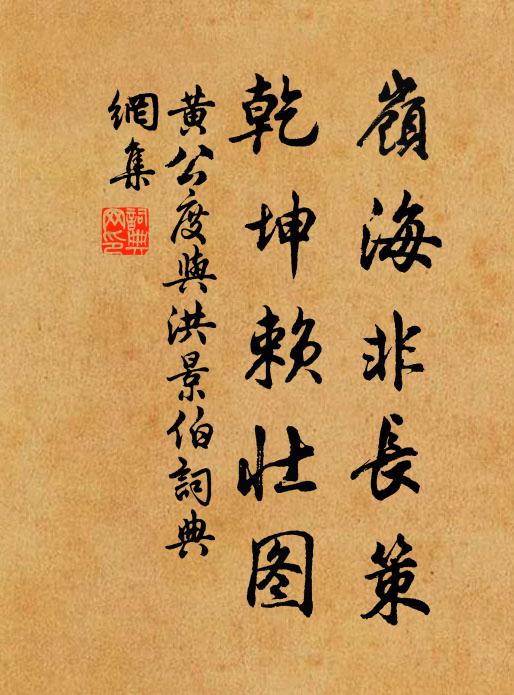 嶺海非長策
乾坤賴壮图
黄公度與洪景伯詞典
網集
詞典網印